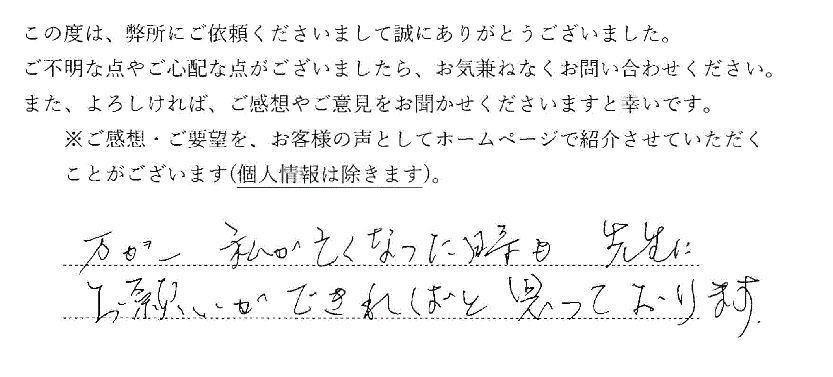 この度は、弊所にご依頼くださいまして誠にありがとうございました。
ご不明な点やご心配な点がございましたら、お気兼ねなくお問い合わせください。
また、よろしければ、ご感想やご意見をお聞かせくださいますと幸いです。
※ご感想・ご要望を、お客様の声としてホームページで紹介させていただく
ことがございます(個人情報は除きます)。
万が一 私が亡くなった時も 先生に
お願いができればと思っております.